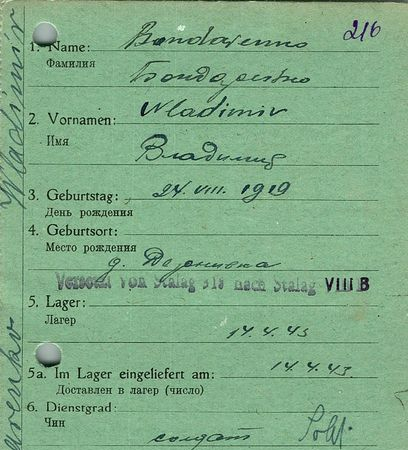 216
1. Name: Bondarenko
Фамилия Бондаренко
2. Vornamen: Wladimir
Имя Владимир
3. Geburtstag: 24. VIII. 1919
День рождения
4. Geburtsort:
Место рождения
д.
Versetzt von Stalag 318 nach Stalag VIII B
5. Lager:
Лагер 14.4.43
5a. Im Lager eingeliefert am: 14.4.43.
Доставлен в лагер (число)
6. Dienstgrad:
Чин солдат Sold.
Wladimir
arenko